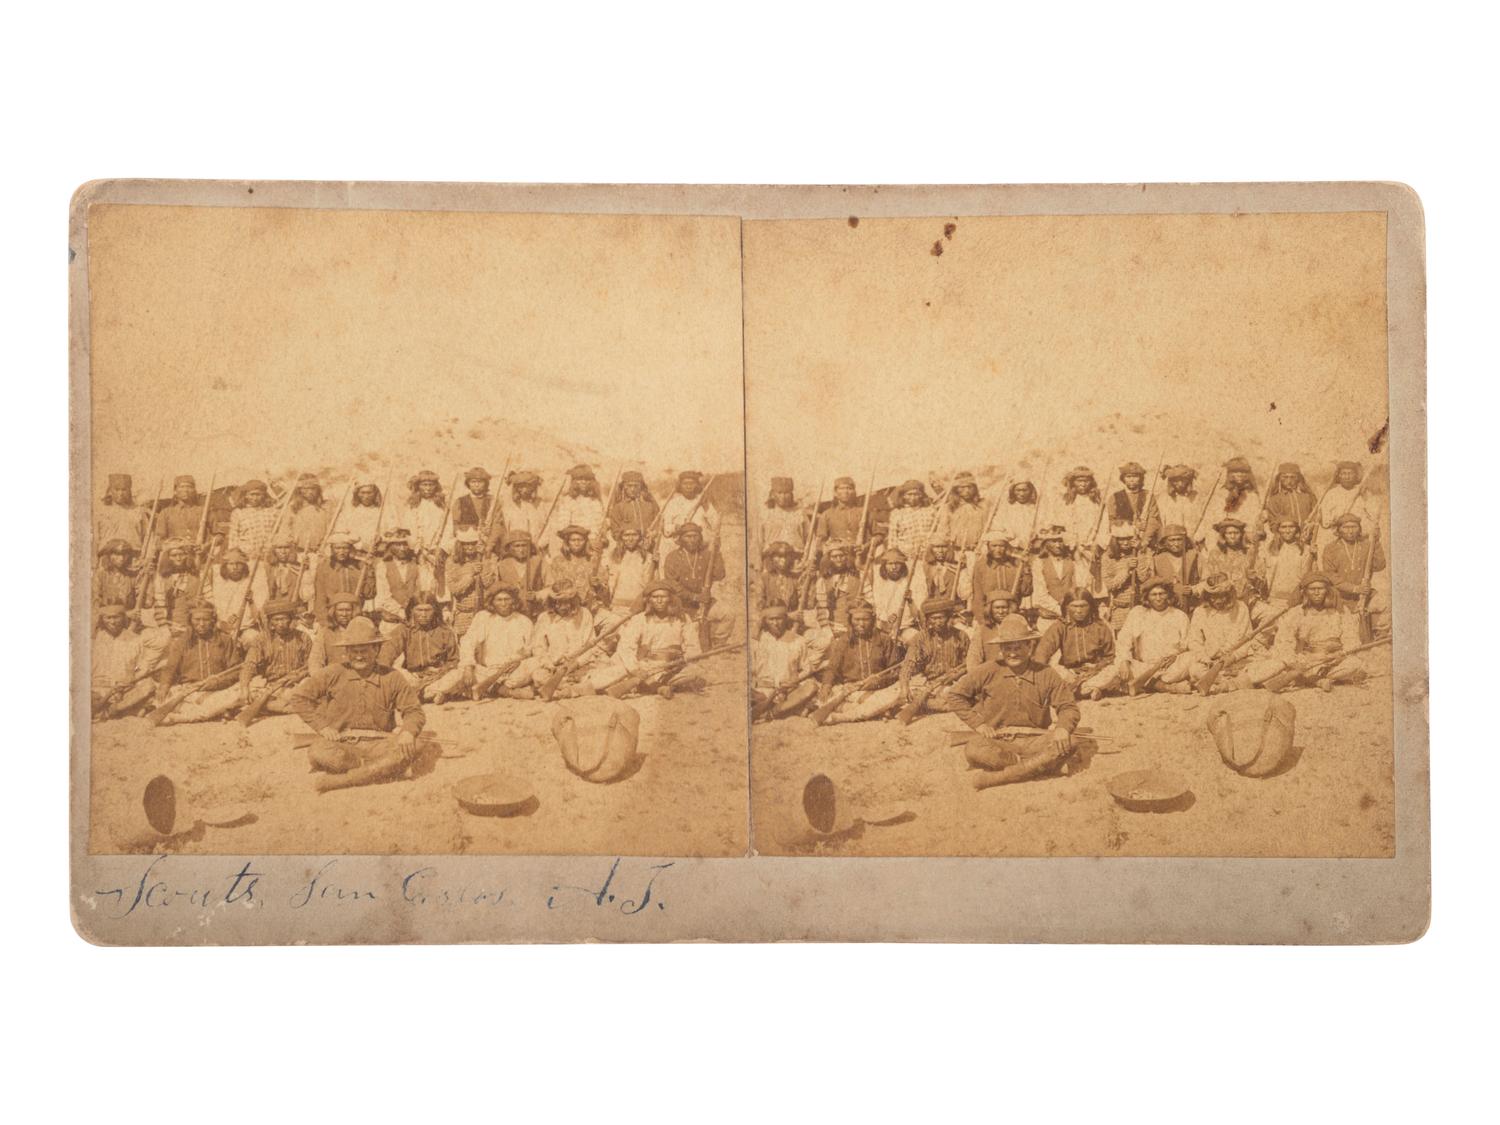 Scouts, San Carlos. A.T.